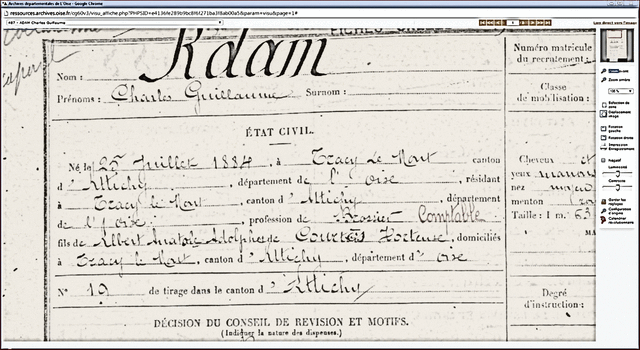 Archives départementales de L'Oise - Google Chrome
487 - ADAM Charles Guillaume
Adam
Nom :
Prénoms : Charles Guillaume Surnom :
ÉTAT CIVIL.
Né le 25 Juillet 1884, à Tracy Le Mont canton
d'Attichy, département de l'oise, résidant
à Tracy le Mont, canton d'Attichy, département
de l'oise, profession de Brossier Comptable
fils de Albert Anatole Adolphe et de Courtois Hortense, domiciliés
à Tracy le Mont, canton d'Attichy, département d' oise
N° 19 de tirage dans le canton d'Attichy
DÉCISION DU CONSEIL DE REVISION ET MOTIFS.
(Indiquer la nature des dispenses.)
Numéro matricule
du recrutement:
Classe
de mobilisation:
Cheveux
yeux
nez
menton
Taille : 1 m. 63
Degré
d'instruction:
Zoom arrière
100 %
Sélection de zone
Déplacement image
Rotation gauche
Rotation droite
Impression
Enregistrement
Négatif
Luminosité
Contraste
Garder les réglages
Configuration d'origine
Calendrier révolutionnaire